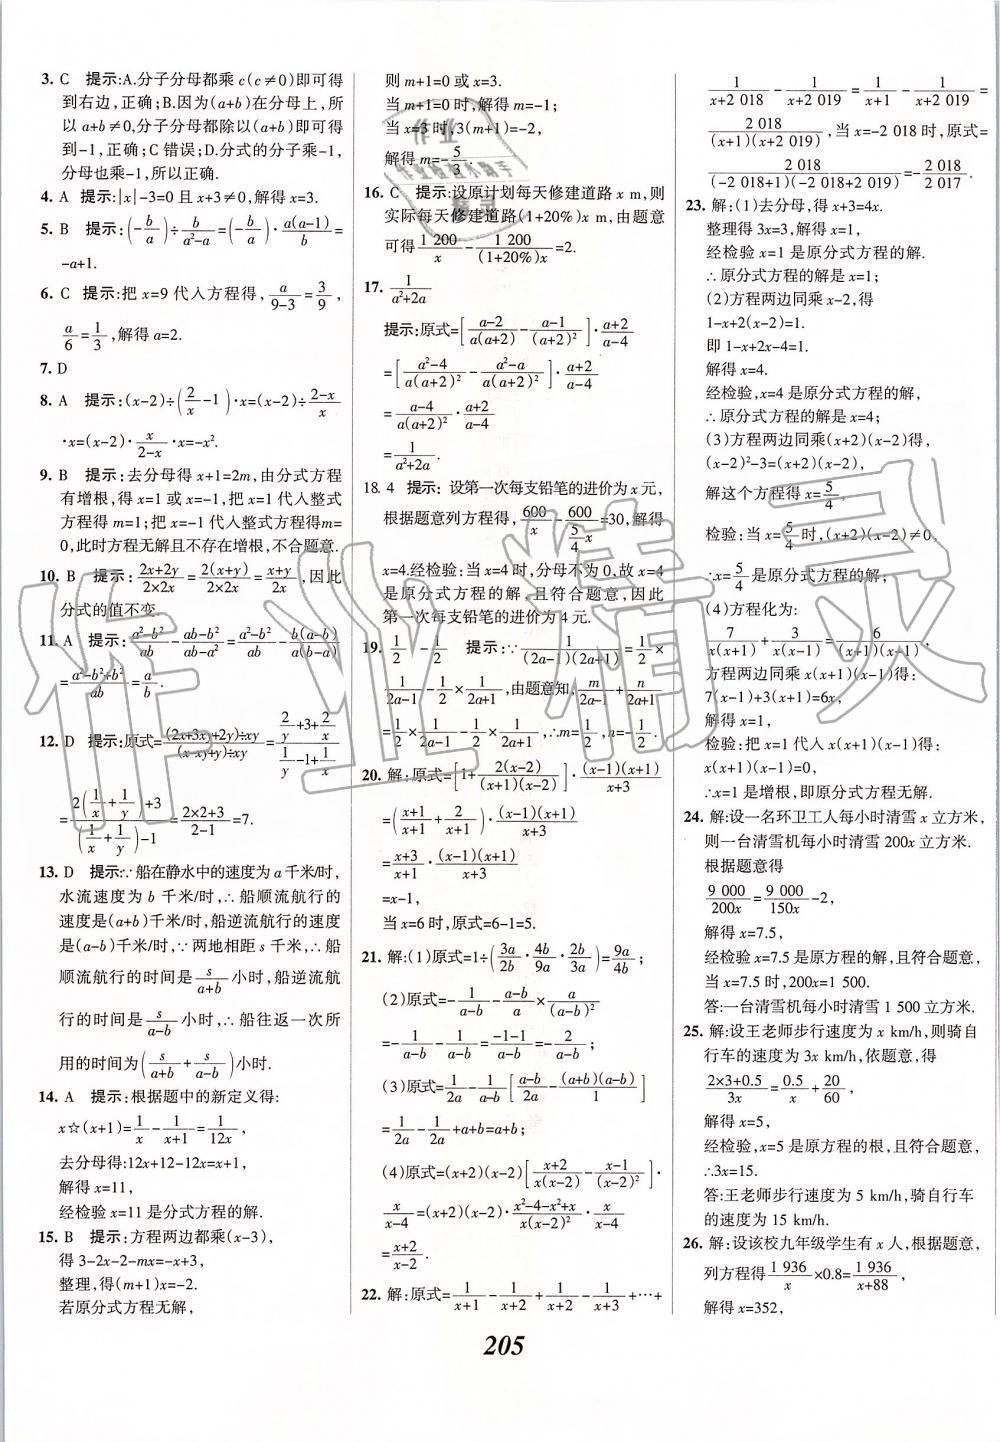 3. C 提示:A.分子分母都乘c(c≠0)即可得
到右边,正确;B.因为(a+b)在分母上,所
以a+b≠0,分子分母都除以(a+b)即可得
到-1,正确;C错误;D.分式的分子乘-1,
分母也乘-1,所以正确.
4. A 提示:|x|-3=0且x+3≠0,解得x=3.
5. B 提示:(-b/a)÷b/(a²-a)=(-b/a)·a(a-1)/b=
-a+1.
6. C 提示:把x=9代人方程得,a/(9-3)=3/9,
a/6=1/3,解得a=2.
7. D
8. A 提示:(x-2)÷(2/x-1)·x=(x-2)÷(2-x)/x
·x=(x-2)·x/(2-x)·x=-x².
9. B 提示:去分母得x+1=2m,由分式方程
有增根,得x=1或x=-1,把x=1代人整式
方程得m=1;把x=-1代人整式方程得m=
0,此时方程无解且不存在增根,不合题意.
10. B 提示:(2x+2y)/(2×2x)=2(x+y)/(2×2x)=(x+y)/2x,因此
分式的值不变.
11. A 提示:(a²-b²)/ab-(ab-b²)/(ab-a²)=(a²-b²)/ab-b(a-b)/a(b-a)
=(a²-b²+b²)/ab=a/b.
12. D 提示:原式=(2x+3xy+2y)÷xy/(x-xy+y)÷xy=(2/y+3+2/x)/(1/y-1+1/x)
=(2(1/x+1/y)+3)/((1/x+1/y)-1)=(2×2+3)/(2-1)=7.
13. D 提示:∵船在静水中的速度为a千米/时,
水流速度为b千米/时,∴船顺流航行的
速度是(a+b)千米/时,船逆流航行的速度
是(a-b)千米/时,∵两地相距s千米,∴船
顺流航行的时间是s/(a+b)小时,船逆流航
行的时间是s/(a-b)小时,∴船往返一次所
用的时间为(s/(a+b)+s/(a-b))小时.
14. A 提示:根据题中的新定义得:
x☆(x+1)=1/x-1/(x+1)=1/12x,
去分母得:12x+12-12x=x+1,
解得x=11,
经检验x=11是分式方程的解.
15. B 提示:方程两边都乘(x-3),
得3-2x-2-mx=-x+3,
整理,得(m+1)x=-2.
若原分式方程无解,
则m+1=0或x=3.
当m+1=0时,解得m=-1;
当x=3时,3(m+1)=-2,
解得m=-5/3.
16. C 提示:设原计划每天修建道路x m,则
实际每天修建道路(1+20%)x m,由题意
可得1 200/x-1 200/(1+20%)x=2.
17. 1/(a²+2a)
提示:原式=[(a-2)/a(a+2)-(a-1)/(a+2)²]·(a+2)/(a-4)
=[(a²-4)/a(a+2)²-(a²-a)/a(a+2)²]·(a+2)/(a-4)
=(a-4)/a(a+2)²·(a+2)/(a-4)
=1/(a²+2a).
18. 4 提示:设第一次每支铅笔的进价为x元,
根据题意列方程得,600/x-600/(5/4 x)=30,解得
x=4.经检验:当x=4时,分母不为0,故x=4
是原分式方程的解,且符合题意,因此
第一次每支铅笔的进价为4元.
19. 1/2 -1/2 提示:∵1/(2a-1)(2a+1)=1/2×
1/(2a-1)-1/2×1/(2a+1),由题意知,m/(2a-1)+n/(2a+1)
=1/2×1/(2a-1)-1/2×1/(2a+1),∴m=1/2,n=-1/2.
20. 解:原式=[1+2(x-2)/(x+1)(x-2)]·(x-1)(x+1)/(x+3)
=((x+1)/(x+1)+2/(x+1))·(x-1)(x+1)/(x+3)
=(x+3)/(x+1)·(x-1)(x+1)/(x+3)
=x-1,
当x=6时,原式=6-1=5.
21. 解:(1)原式=1÷(3a/2b·4b/9a·2b/3a)=9a/4b;
(2)原式=-1/(a-b)-(a-b)/a×a/(a-b)²
=-1/(a-b)-1/(a-b)=(-1-1)/(a-b)=-2/(a-b);
(3)原式=1/2a-1/(a-b)[(a-b)/2a-(a+b)(a-b)/1]
=1/2a-1/2a+a+b=a+b;
(4)原式=(x+2)(x-2)[(x+2)/x(x-2)-(x-1)/(x-2)²]·
x/(x-4)=(x+2)(x-2)·(x²-4-x²+x)/x(x-2)²·x/(x-4)
=(x+2)/(x-2).
22. 解:原式=1/(x+1)-1/(x+2)+1/(x+2)-1/(x+3)+…+
1/(x+2 018)-1/(x+2 019)=1/(x+1)-1/(x+2 019)=
2 018/(x+1)(x+2 019),当x=-2 018时,原式=
2 018/(-2 018+1)(-2 018+2 019)=-2 018/2 017.
23. 解:(1)去分母,得x+3=4x.
整理得3x=3,解得x=1,
经检验x=1是原分式方程的解.
∴原分式方程的解是x=1;
(2)方程两边同乘x-2,得
1-x+2(x-2)=1.
即1-x+2x-4=1.
解得x=4.
经检验,x=4是原分式方程的解,
∴原分式方程的解是x=4;
(3)方程两边同乘(x+2)(x-2),得
(x-2)²-3=(x+2)(x-2),
解这个方程得x=5/4,
检验:当x=5/4时,(x+2)(x-2)≠0,
∴x=5/4是原分式方程的解;
(4)方程化为:
7/x(x+1)+3/x(x-1)=6/(x+1)(x-1),
方程两边同乘x(x+1)(x-1)得:
7(x-1)+3(x+1)=6x,
解得x=1,
检验:把x=1代人x(x+1)(x-1)得:
x(x+1)(x-1)=0,
∴x=1是增根,即原分式方程无解.
24. 解:设一名环卫工人每小时清雪x立方米,
则一台清雪机每小时清雪200x立方米.
根据题意得
9 000/200x=9 000/150x-2,
解得x=7.5,
经检验x=7.5是原方程的解,且符合题意,
当x=7.5时,200x=1 500.
答:一台清雪机每小时清雪1 500立方米.
25. 解:设王老师步行速度为x km/h,则骑自
行车的速度为3x km/h,依题意,得
(2×3+0.5)/3x=0.5/x+20/60,
解得x=5,
经检验,x=5是原方程的根,且符合题意,
∴3x=15.
答:王老师步行速度为5 km/h,骑自行车
的速度为15 km/h.
26. 解:设该校九年级学生有x人,根据题意,
列方程得1 936/x×0.8=1 936/(x+88),
解得x=352,
205
作业精灵